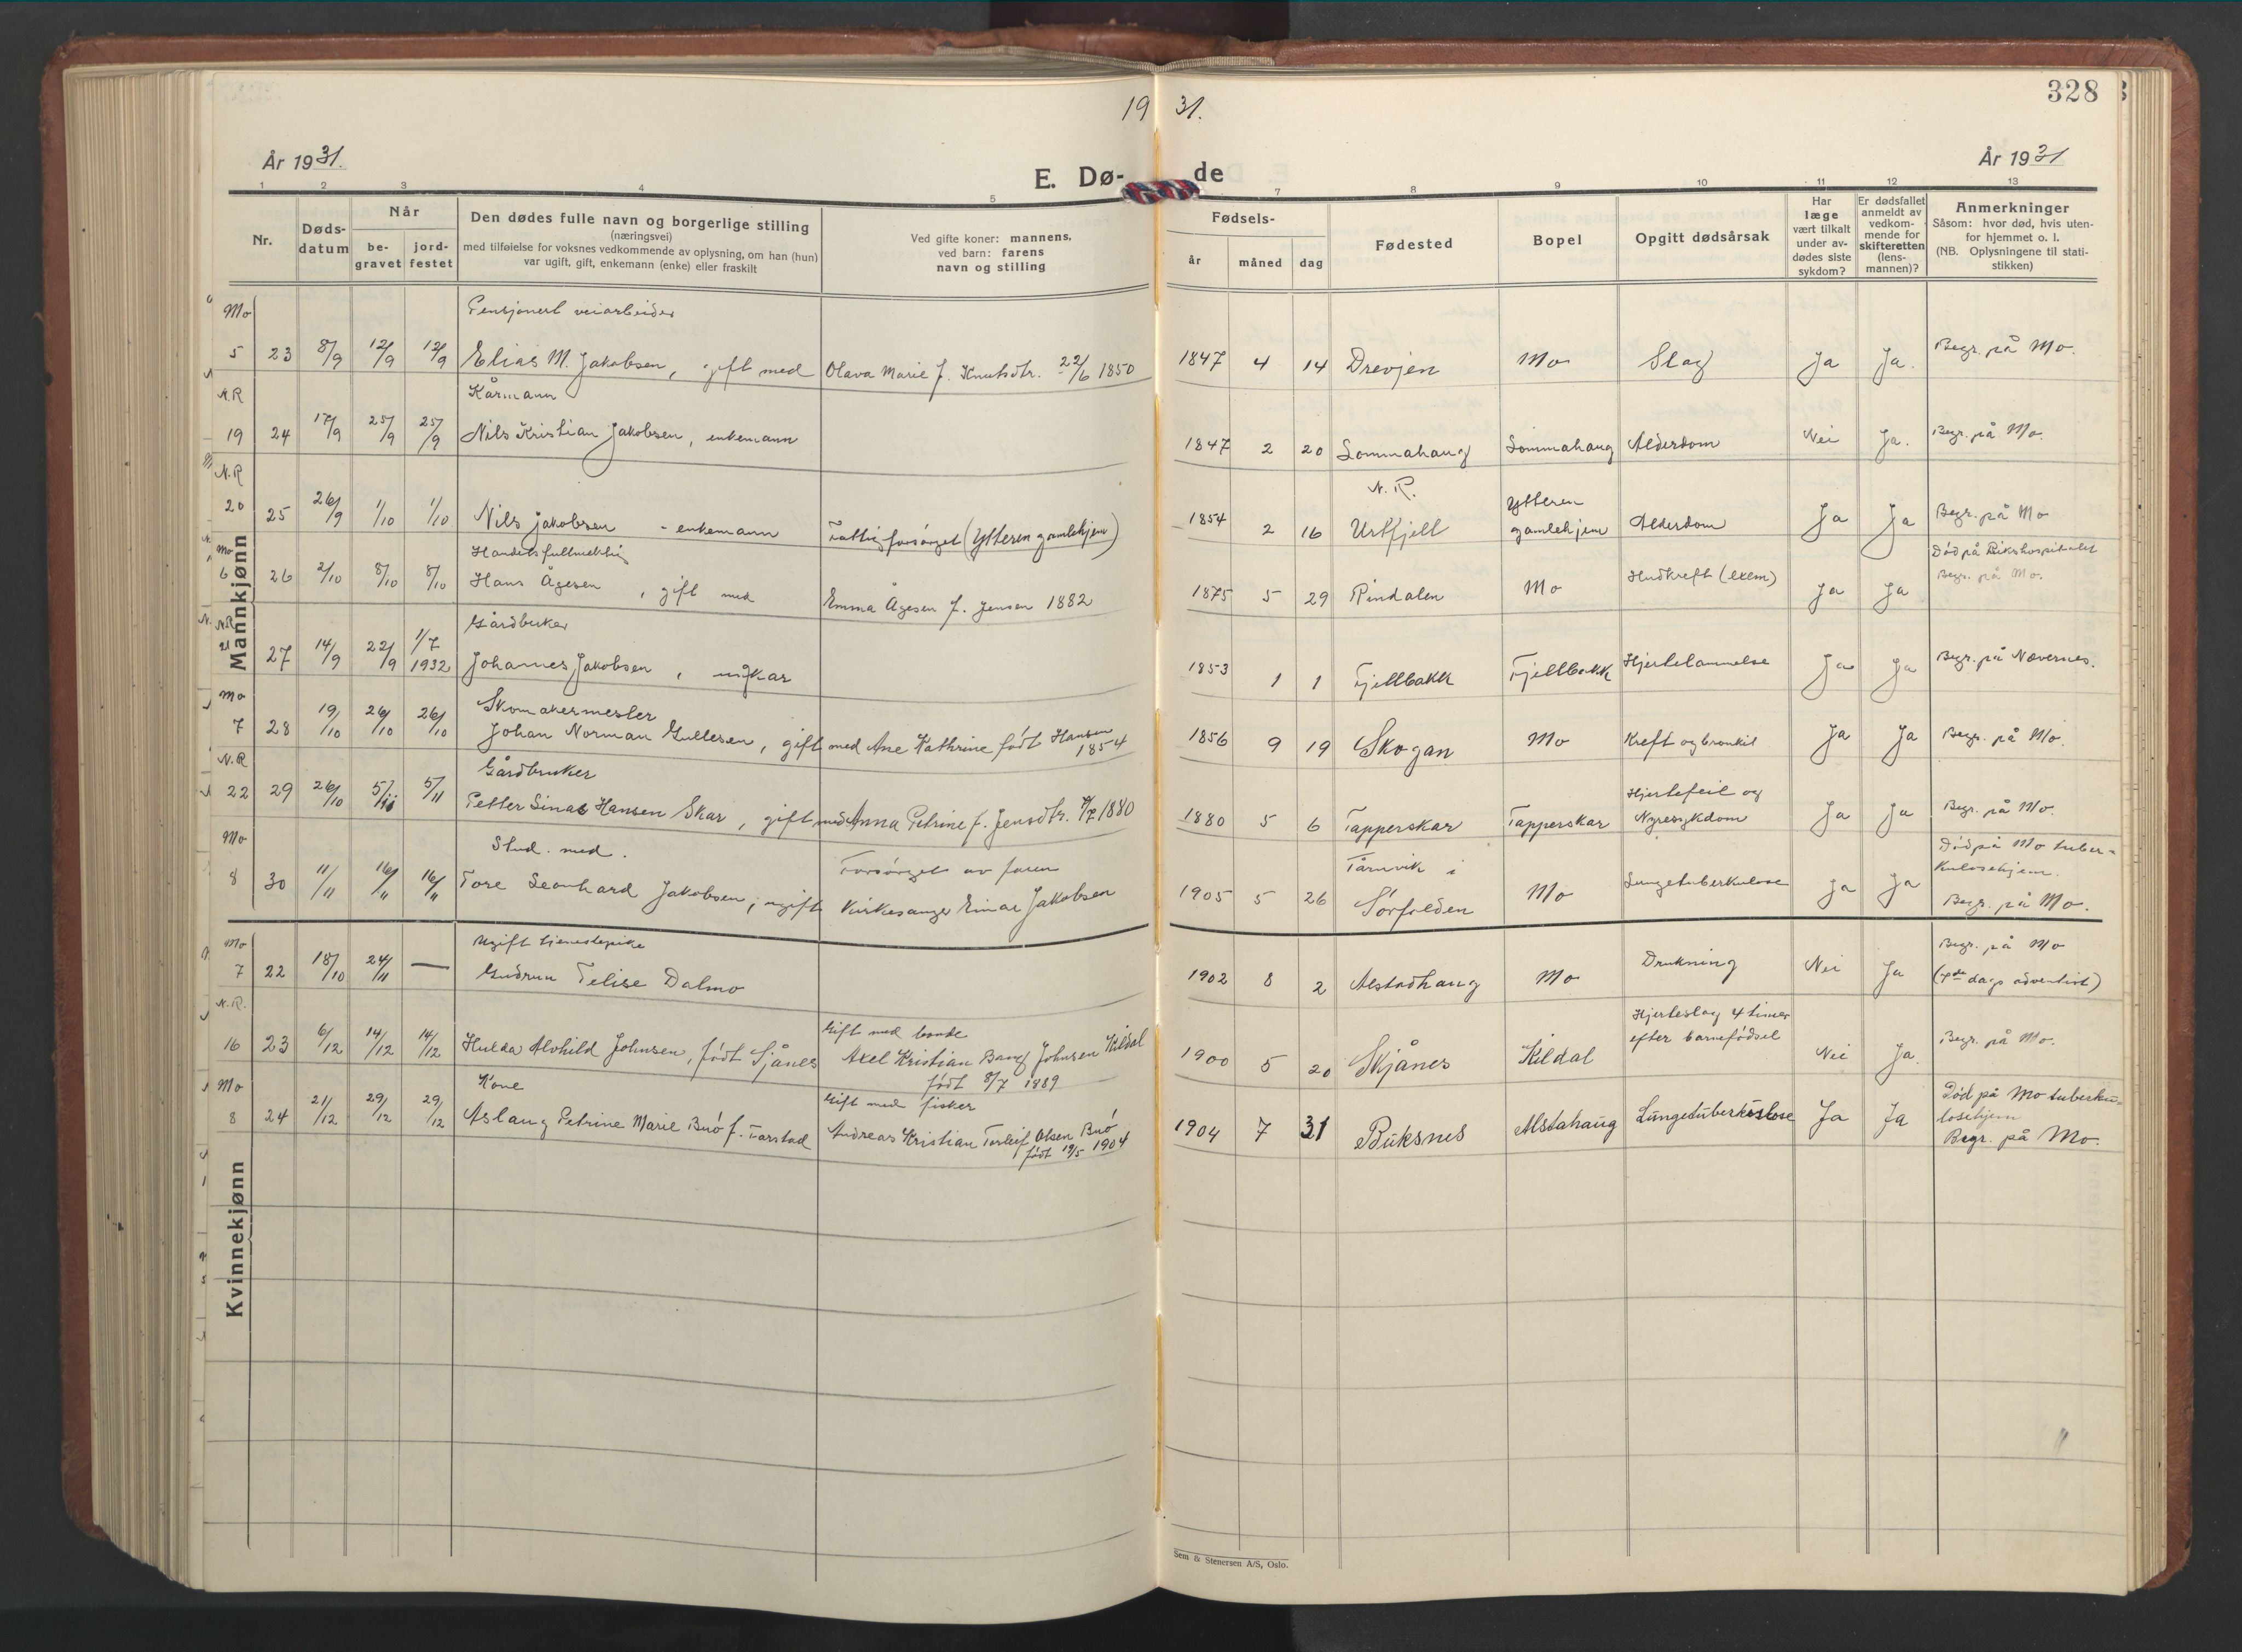 19 31.
328
År 1931.
E. Dø-de
År 1931
1 2 3 4 5 7 8 9 10 11 12 13
Nr.
Døds-
datum
Når
be-
gravet
jord-
festet
Den dødes fulle navn og borgerlige stilling
(næringsvei)
med tilføielse for voksnes vedkommende av oplysning, om han (hun)
var ugift, gift, enkemann (enke) eller fraskilt
Ved gifte koner: mannens,
ved barn: farens
navn og stilling
Fødsels-
år måned dag
Fødested
Bopel
Opgitt dødsårsak
Har
læge
vært tilkalt
under av-
dødes siste
sykdom?
Er dødsfallet
anmeldt av
vedkom-
mende for
skifteretten
(lens-
mannen)?
Anmerkninger
Såsom: hvor død, hvis uten-
for hjemmet o. l.
(NB. Oplysningene til stati-
stikken)
Mannkjønn
Mo Pensjonert veiarbeider
5 23 8/9 12/9 12/9 Elias M. Jakobsen, gift med Olava Marie f. Knutsdtr. 22/6 1850 1847 4 14 Drevjen Mo Slag Ja Ja. Begr. på Mo.
N.R Kårmann
19 24 17/9 25/9 25/9 Nils Kristian Jakobsen, enkemann 1847 2 20 Sommahaug Sommahaug Alderdom Nei Ja. Begr. på Mo.
N.R N.R. Ytteren
20 25 26/9 1/10 1/10 Nils Jakobsen - enkemann Fattigforsørget (Ytteren gamlehjem) 1854 2 16 Urtfjell gamlehjem Alderdom Ja Ja Begr. på Mo
Mo Handelsfullmektig Død på Rikshospitalet
6 26 2/10 8/10 8/10 Hans Ågesen, gift med Emma Ågesen f. Jensen 1882 1875 5 29 Rindalen Mo Hudkreft (exem) Ja Ja Begr. på Mo.
N.R Gårdbruker
21 27 14/9 22/9 1/7 1932 Johannes Jakobsen, ungkar 1853 1 1 Fjellbakk Fjellbakk Hjertelammelse Ja Ja Begr. på Nævernes.
Mo Skomakermester
7 28 19/10 26/10 26/10 Johan Norman Gullesen, gift med Ane Kathrine født Hansen 1854 1856 9 19 Skogan Mo Kreft og bronkit Ja Ja Begr. på Mo.
N.R Gårdbruker Hjertefeil og
22 29 26/10 5/11 5/11 Petter Sinas Hansen Skar, gift med Anna Petrine f. Jensdtr. 4/7 1880 1880 5 6 Tapperskar Tapperskar Nyresykdom Ja Ja Begr. på Mo.
Mo Stud. med. Forsørget av faren Tårnvik i Død på Mo tuber-
kulosehjem.
8 30 11/11 16/11 16/11 Tore Leonhard Jakobsen, ugift Kirkesanger Einar Jakobsen 1905 5 26 Sørfolden Mo Lungetuberkulose Ja Ja Begr. på Mo.
Kvinnekjønn
Mo Ugift tjenestepike Begr. på Mo
7 22 18/10 24/11 — Gudrun Felise Dalmo 1902 8 2 Alstadhaug Mo Drukning Nei Ja (7de dags adventist)
N.R. Gift med bonde Hjerteslag 4 timer
16 23 6/12 14/12 14/12 Hulda Alvhild Johnsen, født Sjånes Axel Kristian Bang Johnsen Kildal 1900 5 20 Skjånes Kildal efter barnefødsel Nei Ja. Begr. på Mo.
født 8/7 1889
Mo Kone Gift med fisker Død på Mo tuberku-
losehjem
8 24 21/12 29/12 29/12 Aslaug Petrine Marie Buø f. Farstad Andreas Kristian Torleif Olsen Buø 1904 7 31 Buksnes Alstahaug Lungetuberkulose Ja Ja Begr. på Mo.
født 19/5 1904
Sem & Stenersen A/S, Oslo.